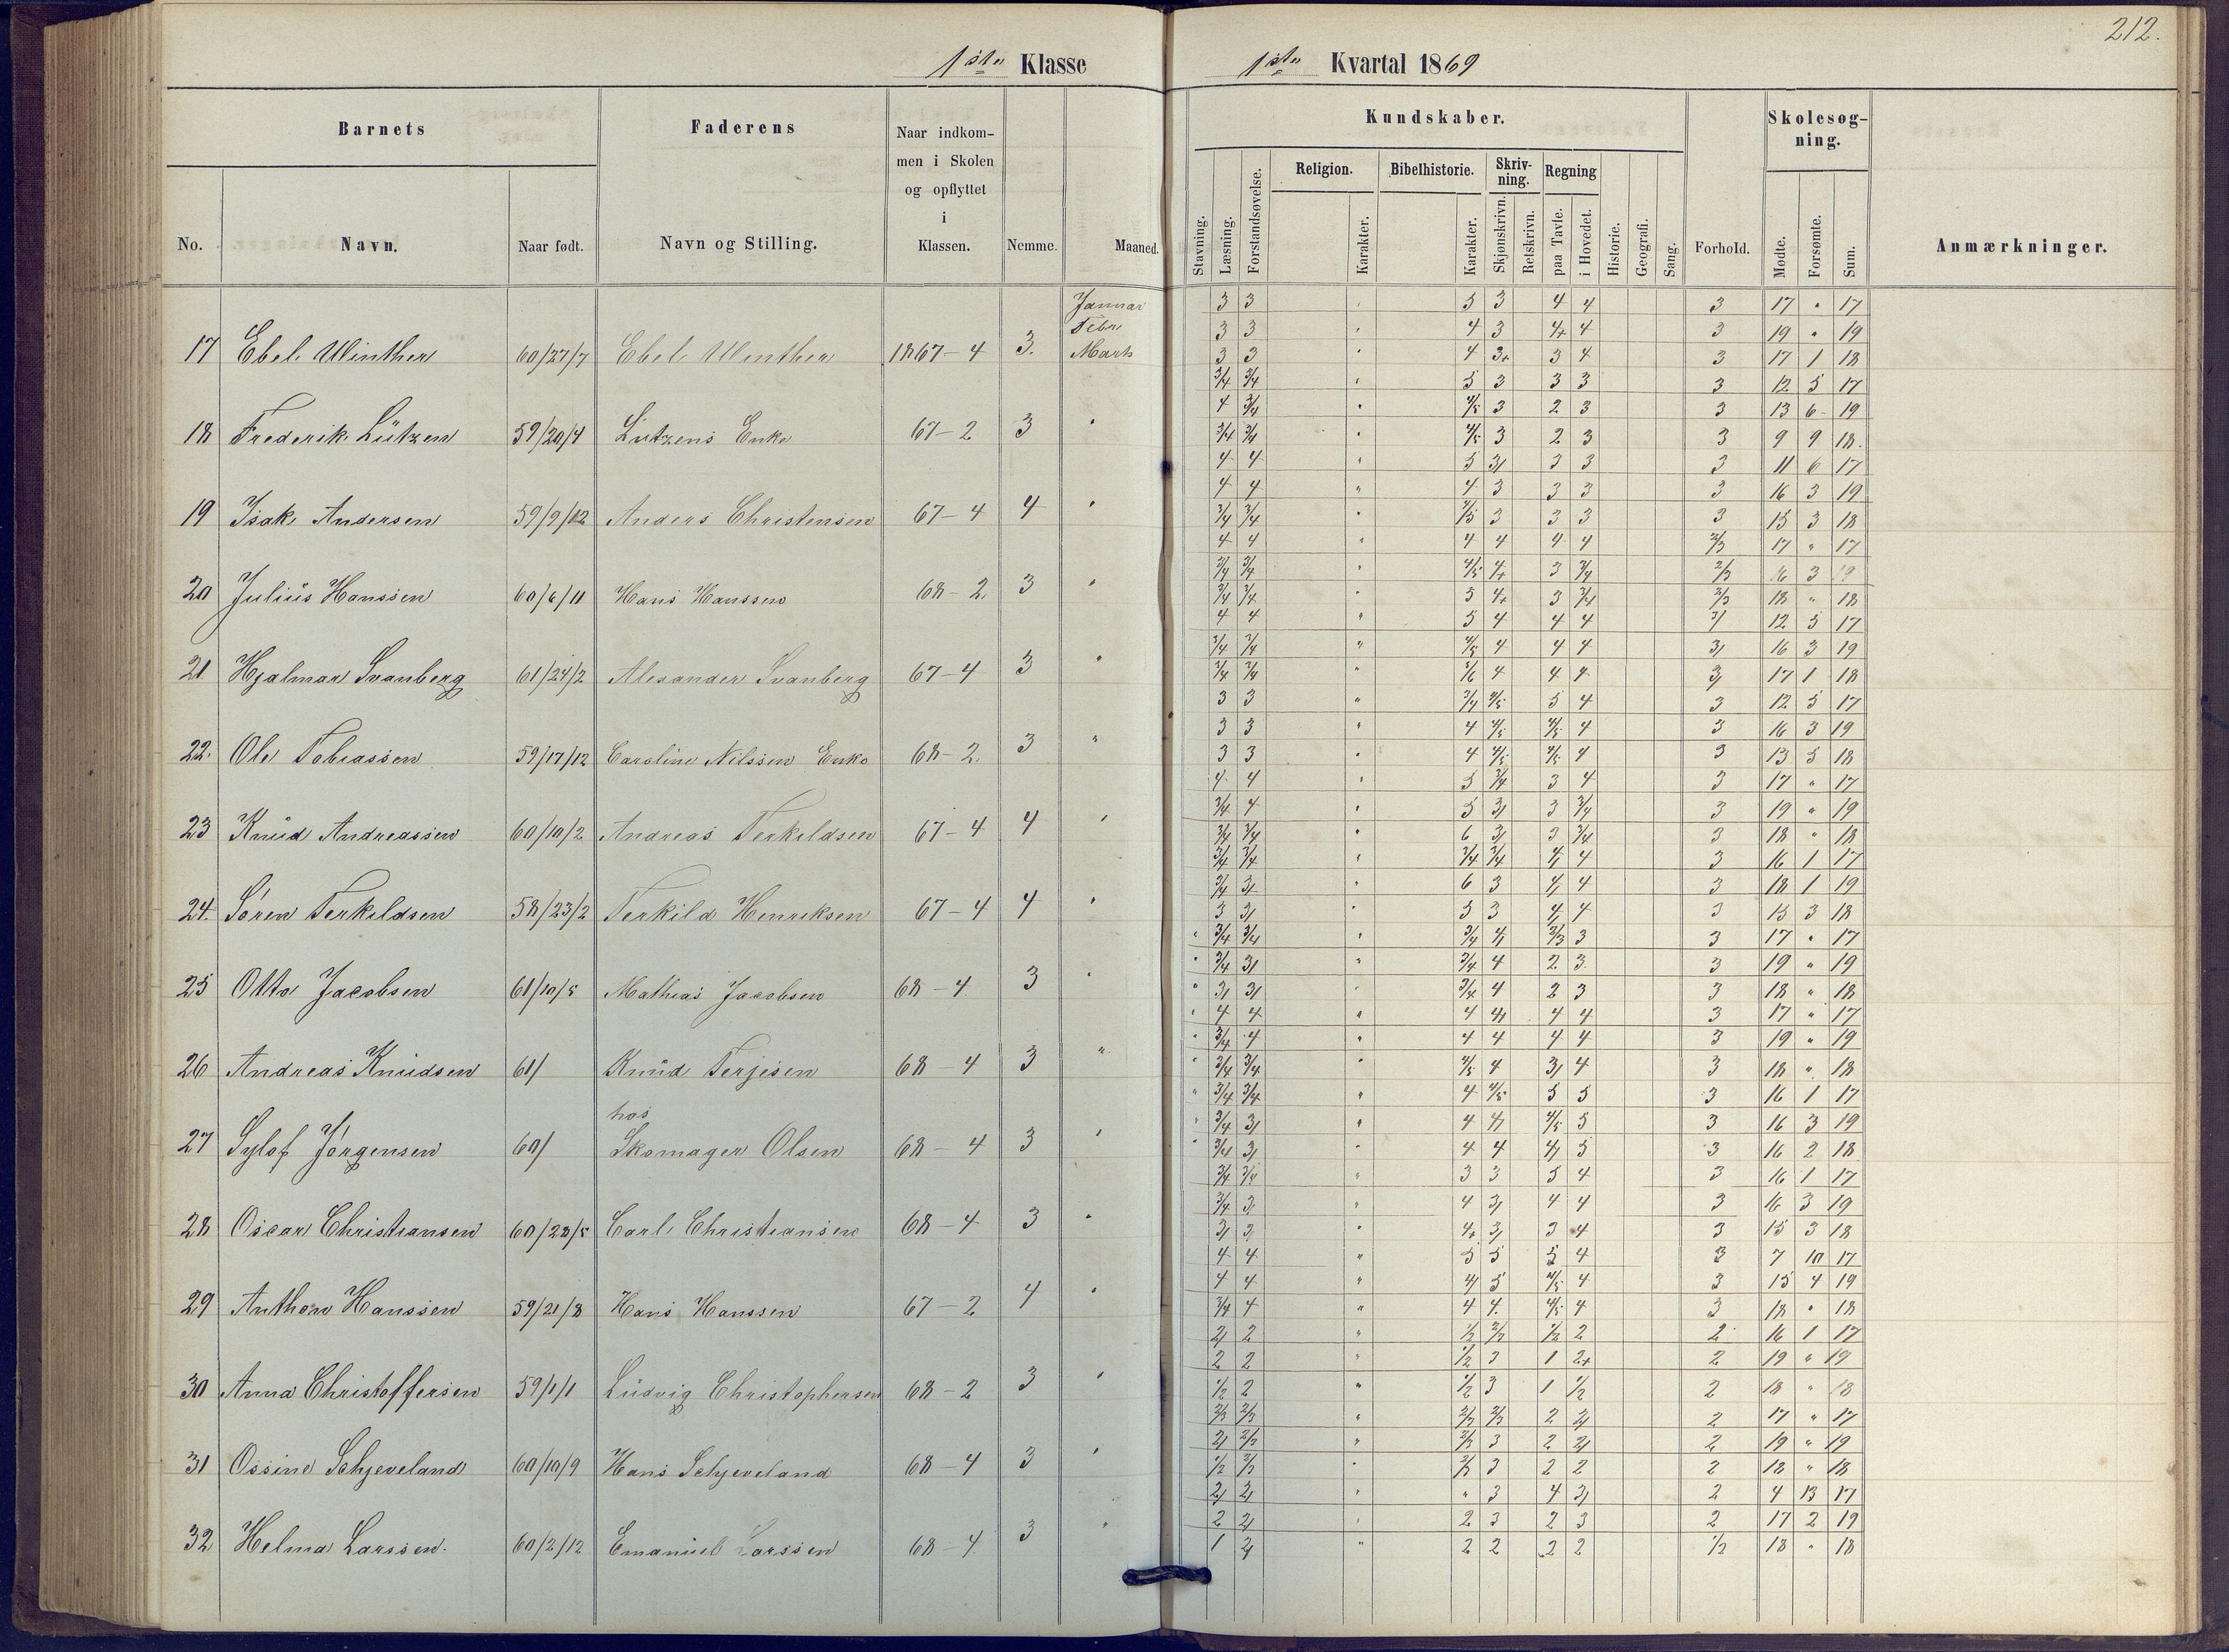 212.
1ste Klasse
1ste Kvartal 1869
Barnets
Faderens
Naar indkommen i Skolen og opflyttet i Klassen.
Nemme.
Maaned.
No.
Navn.
Naar født.
Navn og Stilling.
Kundskaber.
Stavning.
Læsning.
Forstandsøvelse.
Religion.
Karakter.
Bibelhistorie.
Karakter.
Skrivning.
Skjønskrivn.
Retskrivn.
Regning
paa Tavle.
i Hovedet.
Historie.
Geografi.
Sang.
Forhold.
Skolesøgning.
Mødte.
Forsømte.
Sum.
Anmærkninger.
Januar 3 3 5 3 4 4 3 17 " 17
Febr 3 3 4 3 4+ 4 3 19 " 19
17 Ebel Winther 60/27/7 Ebel Winther 1867-4 3. Marts 3 3 4 3+ 3 4 3 17 1 18
3/4 3/4 5 3 3 3 3 12 5 17
4 3/4 4/5 3 2 3 3 13 6 19
18 Frederik Lützen 59/20/4 Lützens Enke 67-2 3 " 3/4 3/4 4/5 3 2 3 3 9 9 18
4 4 5 3/ 3 3 3 11 6 17
4 4 " 4 3 3 3 3 16 3 19
19 Isak Andersen 59/9/12 Anders Christensen 67-4 4 " 3/4 3/4 4/5 3 3 3 3 15 3 18
4 4 4 4 4 4 2/3 17 " 17
3/4 3/4 4/5 4+ 3 3/4 2/3 16 3 19
20 Julius Hanssen 60/6/11 Hans Hanssen 68-2. 3 " 3/4 3/4 5 4+ 3 3/4 2/3 18 " 18
4 4 5 4 4 4 3/ 12 5 17
3/4 3/4 " 4/5 4 4 4 3/ 16 3 19
21 Hjalmar Svanberg 61/24/2 Alexander Svanberg 67-4 3 " 3/4 3/4 " 5/6 4 4 4 3/ 17 1 18
3 3 " 3/4 4/5 5 4 3 12 5 17
3 3 4 4/5 4/5 4 3 16 3 19
22. Ole Tobiassen 59/17/12 Caroline Nilssen Enke 68-2. 3 " 3 3 4 4/5 4/5 4 3 13 5 18
4 4 5 3/4 3 4 3 17 " 17
3/4 4 5 3/ 3 3/4 3 19 " 19
23 Knüd Andreassen 60/10/2 Andreas Terkildsen 67-4 4 " 3/4 3/4 6 3/ 3 3/4 3 18 " 18
3/4 3/4 3/4 3/4 4/ 4 3 16 1 17
3/4 3/ 6 3 4/ 4 3 18 1 19
24. Sören Terkildsen 58/23/2 Terkild Henriksen 67-4 4 " 3 3/ 5 3 4/ 4 3 15 3 18
" 3/4 3/4 3/4 4/ 2/3 3 3 17 " 17
" 3/4 3/ " 3/4 4 2 3 3 19 " 19
25 Otto Jacobsen 61/10/5 Mathias Jacobsen 68-4 3 " " 3/ 3/ 3/4 4 2 3 3 18 " 18
" 4 4 " 4 4/ 4 4 3 17 " 17
" 3/4 4 " 4 4 4 4 3 19 " 19
26 Andreas Knüdsen 61/ Knüd Terjesen 68-4 3 " " 3/4 3/4 4/5 4 3/ 4 3 18 " 18
" 3/4 3/4 " 4 4/5 5 5 3 16 1 17
hos
" 3/4 3/ " 4 4/ 4/5 5 3 16 3 19
27 Sylof Jörgensen 60/ Skomager Olsen 68-4 3 " " 3/4 3/ 4 4 4/ 5 3 16 2 18
3/4 3/4 " 3 3 5 4 3 16 1 17
3/4 3 " 4 3/ 4 4 3 16 3 19
28 Oscar Christiansen 60/28/5 Carl Christiansen 68-4 3 " 3/ 3/ 4+ 3/ 3 4 3 15 3 18
4 4 " 5 5 5 4 3 7 10 17
4 4 " 4/ 5 4/5 4 3 15 4 19
29 Anthon Hanssen 59/21/8 Hans Hanssen 67-2 4 " 3/4 4 " 4 4. 4/5 4 3 18 " 18
2/ 2 " 1/2 2/3 1/2 2 2 16 1 17
2 2 " 1/2 3 1 2+ 2 19 " 19
30 Anna Christoffersen 59/1/1 Lüdvig Christophersen 68-2 3 " 1/2 2 " 1/2 3 1 1/2 2 18 " 18
2/3 2/3 " 2/3 2/3 2 2/ 2 17 " 17
2/ 2/3 " 2/3 3 2 2/ 2 19 " 19
31 Ossine Schjeveland 60/10/9 Hans Schjeveland 68-4 3 " 1/2 2/3 2/3 3 2 2 2 18 " 18
2/ 2/ " 3 4 3/ 2 4 13 17
2 2/ 2 3 2 3 2 17 2 19
32 Helma Larssen. 60/2/12 Emanuel Larssen 68-4 3 " 1 2/ " 2 2 2 2 1/2 18 " 18